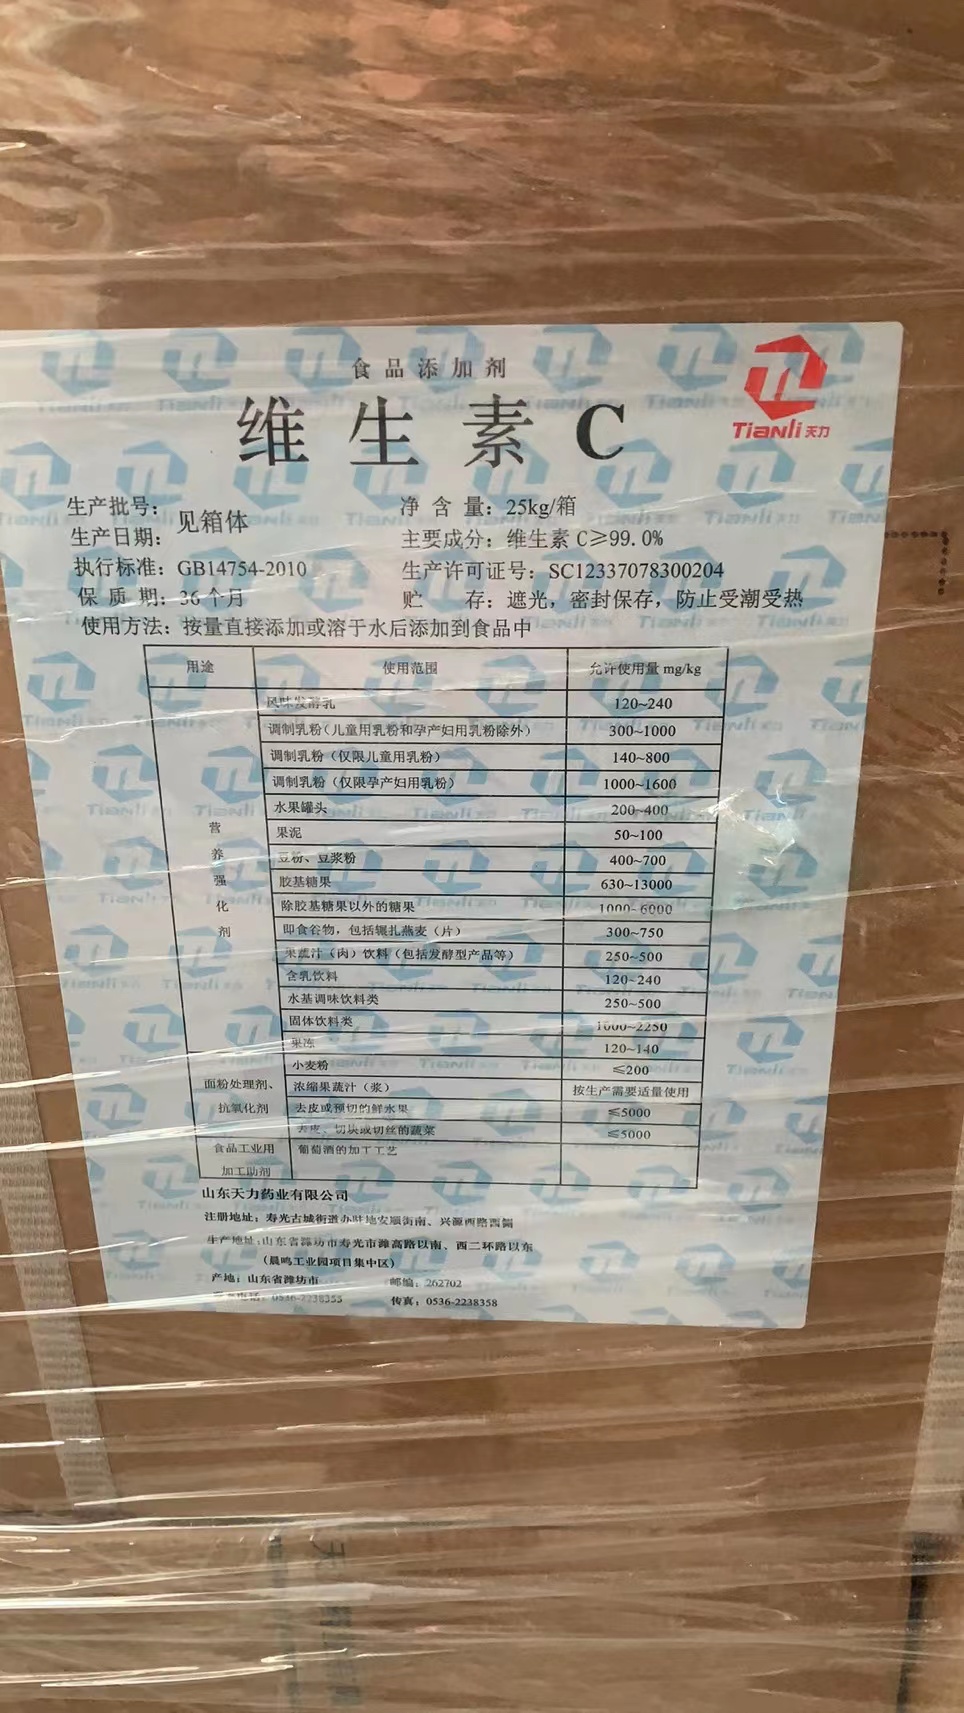 食品添加剂
维生素C
Tianli天力
生产批号：
生产日期：
见箱体
执行标准：GB14754-2010
保质期：36个月
净含量：25kg/箱
主要成分：维生素C≥99.0%
生产许可证号：SC12337078300204
贮存：遮光，密封保存，防止受潮受热
使用方法：按量直接添加或溶于水后添加到食品中
用途 使用范围 允许使用量 mg/kg
营养强化剂
风味发酵乳 120~240
调制乳粉（儿童用乳粉和孕产妇用乳粉除外） 300~1000
调制乳粉（仅限儿童用乳粉） 140~800
调制乳粉（仅限孕产妇用乳粉） 1000~1600
水果罐头 200~400
果泥 50~100
豆粉、豆浆粉 400~700
胶基糖果 630~13000
除胶基糖果以外的糖果 1000~6000
即食谷物，包括辗扎燕麦（片） 300~750
果蔬汁（肉）饮料（包括发酵型产品等） 250~500
含乳饮料 120~240
水基调味饮料类 250~500
固体饮料类 1000~2250
果冻 120~140
面粉处理剂、
抗氧化剂
小麦粉 ≤200
浓缩果蔬汁（浆） 按生产需要适量使用
去皮或预切的鲜水果 ≤5000
去皮、切块或切丝的蔬菜 ≤5000
食品工业用
加工助剂
葡萄酒的加工工艺
山东天力药业有限公司
注册地址：寿光古城街道办驻地安顺街南、兴源西路西侧
生产地址：山东省潍坊市寿光市潍高路以南、西二环路以东
（晨鸣工业园项目集中区）
产地：山东省潍坊市 邮编：262702
电话：0536-2238355 传真：0536-2238358